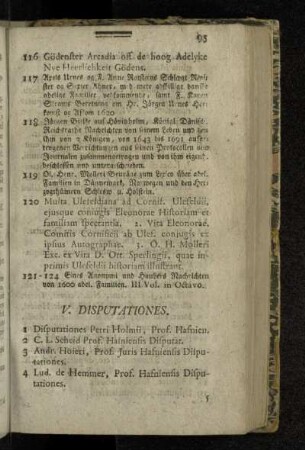 95
116 Gůdenster Arcadia oft. de hoog. Adelyke
Nye Heerlichkeit Gődens.
117 Axels Urnes og F. Anne Rønnovs Slægt Regi-
ster og Siger Ahner, med mere adskillige danske
adelige Familier vedkommende, samt F. Karen
Beretning om Hr. Jørgen Urnes Her-
komst og Afkom 1620
118 Jůrgen Bielke auf Hőviisholm, Kőnigl. Dånisch.
Reichsraths Nachrichten von seinem Leben und
Thun von 3 Kőnigen, von 1643 bis 1691 aufge-
tragener Verrichtungen aus seinen Protocollen und
Journalen zusammengetragen und von ihm eigenh.
beschlossen und unterschrieben.
119 Ol. Henr. Molleri Beytråge zum Leben über adel.
Familien in Dånnemark, Norwegen und den Her-
zogthümern Schlesw. u. Hollstein.
120 Multa Ulefeldiana ad Cornif. Ulefeldii,
ejusque conjugis Eleonoræ Historiam et
familiam spectantia. 2. Vita Eleonoræ.
Comitis Cornificii ab Ulef. conjugis ex
ipsius Autographæ. 3. O. H. Molleri
Exc. ex Vita D. Ott. Sperlingii, quæ in-
primis Ulefeldii historiam illustrant.
121-124 Eines Anonymi und Nachrichten
von 1600 adel. Familien. III Vol. in Octavo.
V. DISPUTATIONES.
1 Disputationes Petri Holmii, Prof. Hafnien.
2 C. L. Scheid Prof. Hafniensis Disputat.
3 Andr. Hőieri, Prof. Juris Hafniensis Dispu-
tationes.
4 Lud. de Hemmer, Prof. Hafniensis Dispu-
tationes.
5